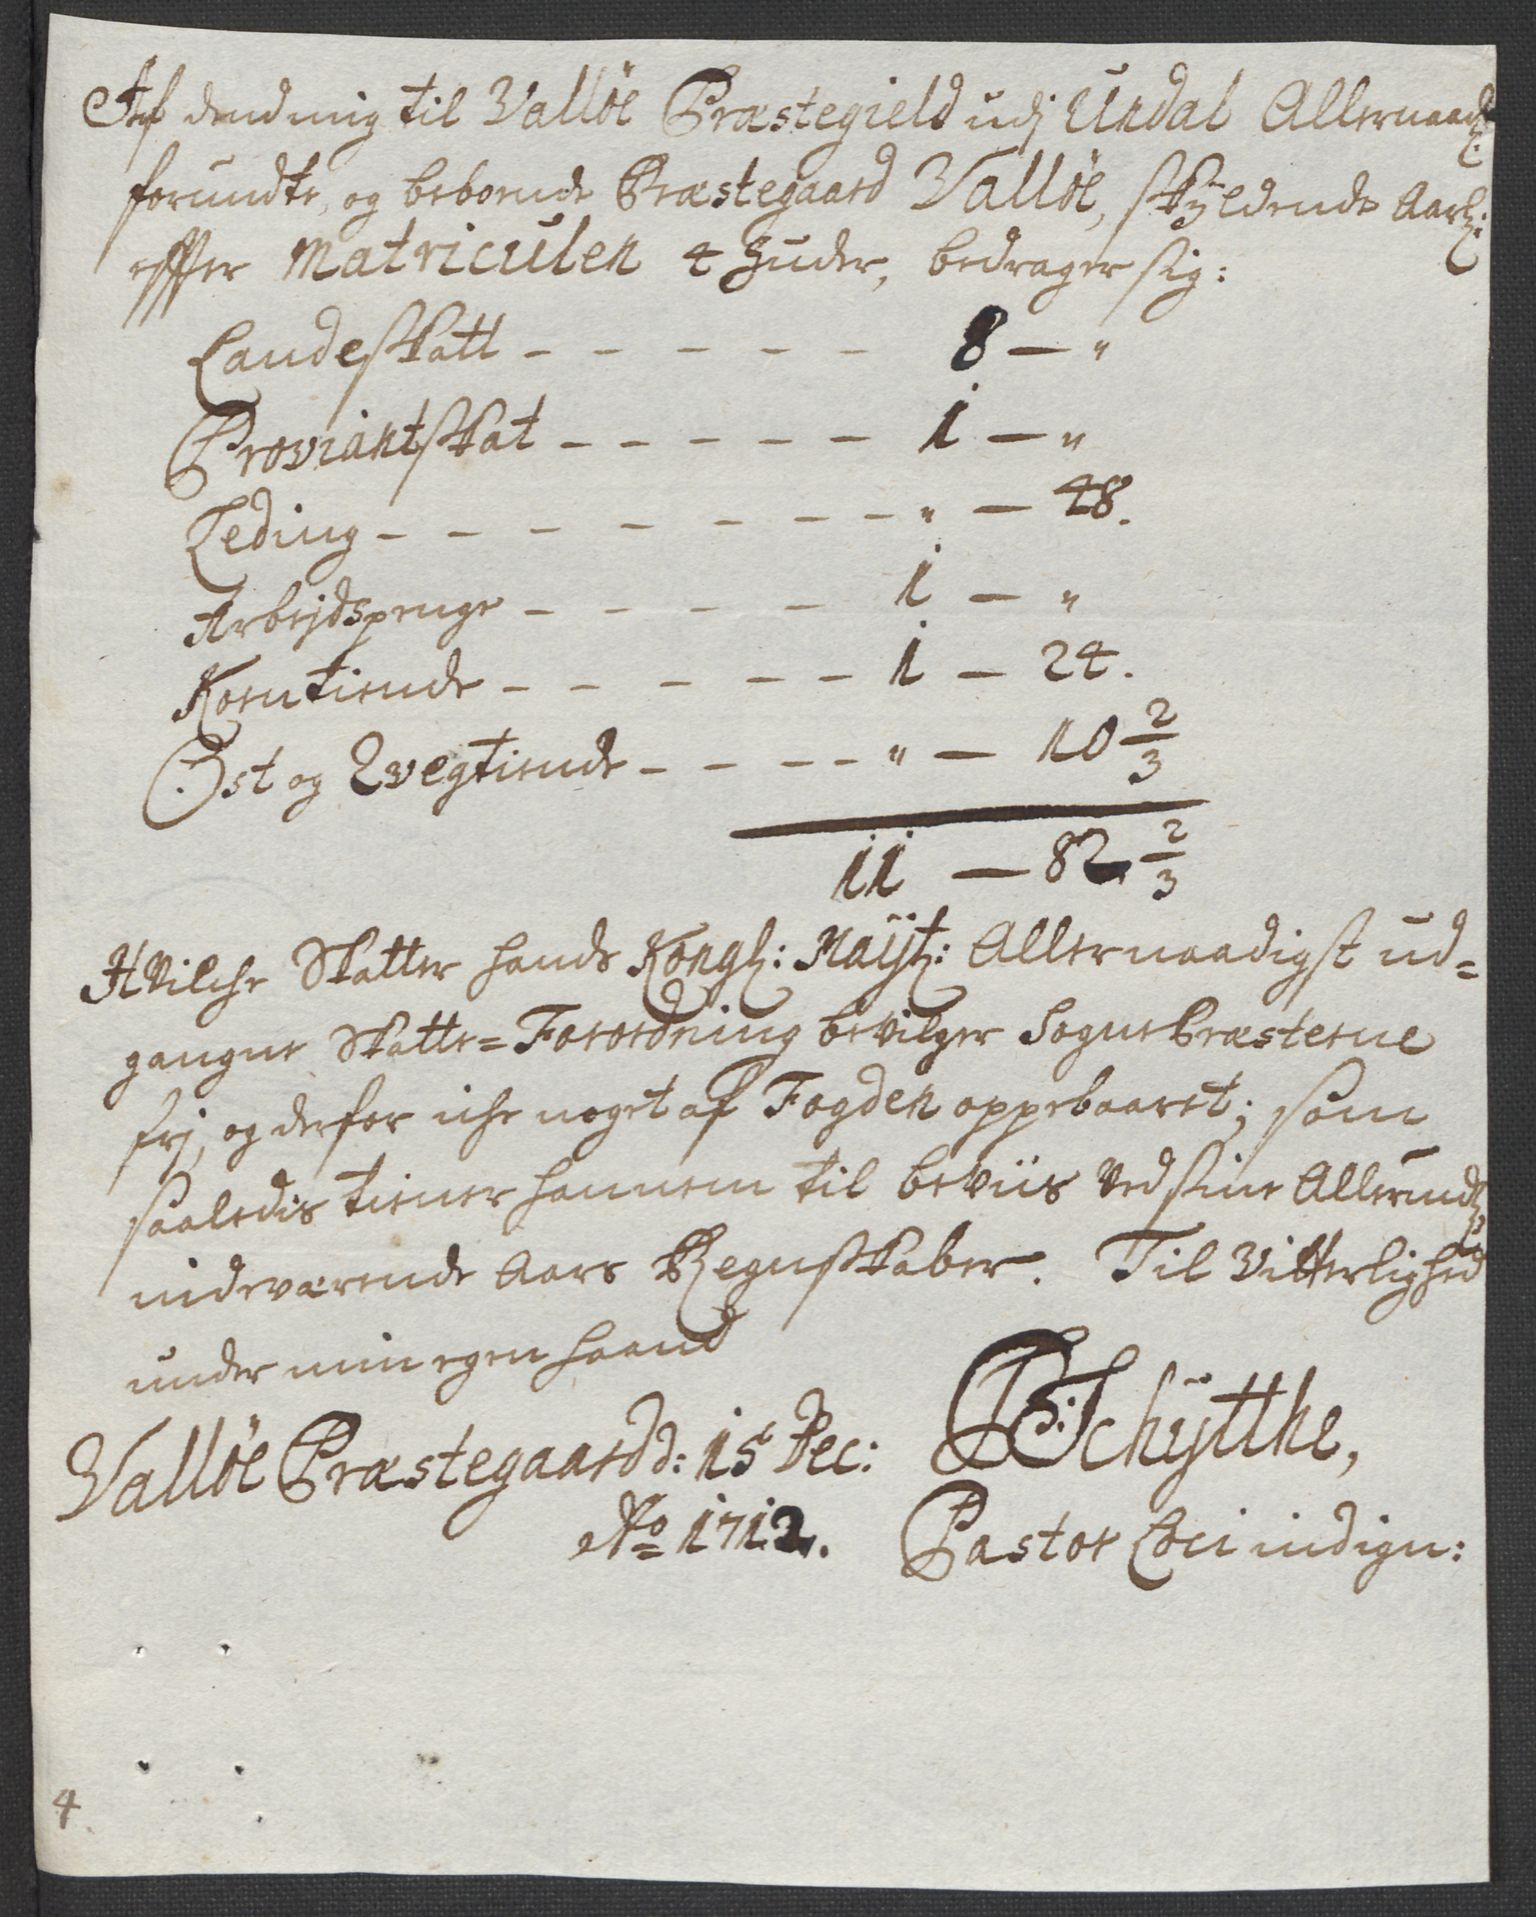 Af dend mig til Valløe Præstegield udj Undal Allernaadt:
forundte, og beboende Præstegaard Valløe, skÿldende Aarl:
effter Matriculen 4 Huder, bedrager sig:
Landeskatt - - - - - 8 — "
Proviantskat - - - - - 1 — "
Leding - - - - - - - " — 48.
Arbejdspenge - - - - 1 — "
Korntiende - - - - - 1 — 24.
Ost og Qvegtiende - - - - " — 10 2/3
11 — 82 2/3
Hvilche Skatter hands Kongl: Maÿt: Allernaadigst ud=
gangne Skatte=Forordning bevilger Sogne Præsterne
frj, og derfor iche noget af Fogden oppebaaret; som
saaledis tiener hannem til beviis ved sine Allerund:
indeværende Aars Regnskaber. Til Vitterlighed
under min egen haand
Valløe Præstegaard d: 15 Dec:
Ao 1712.
PSchÿtthe,
Pastor Loci indign:
4